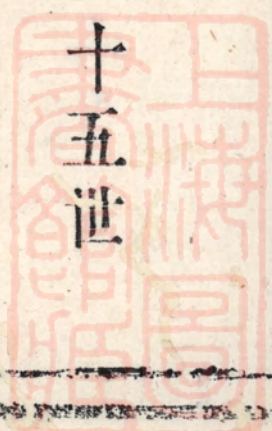 十五世
上海圖
書館藏